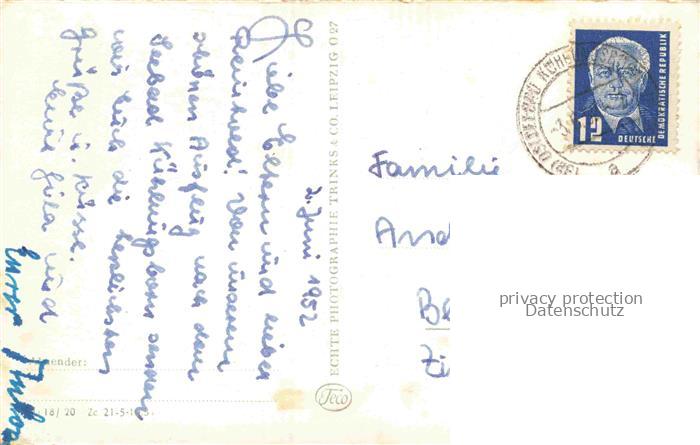 2. Juni 1952
Liebe Eltern und lieber
Reinhard! Von unserem
schönen Ausflug nach dem
Seebad Kühlungsborn senden
wir Euch die herzlichsten
Grüße u. Küsse.
Eure Gila und
Euer
ECHTE PHOTOGRAPHIE TRINKS & CO. LEIPZIG O 27
Teco
Absender:
18/20 Zc 21-5-1
Familie
And
Be
Zi
privacy protection
Datenschutz
12
DEUTSCHE
DEMOKRATISCHE REPUBLIK
OSTSEEBAD KÜHLUNGSBORN
a